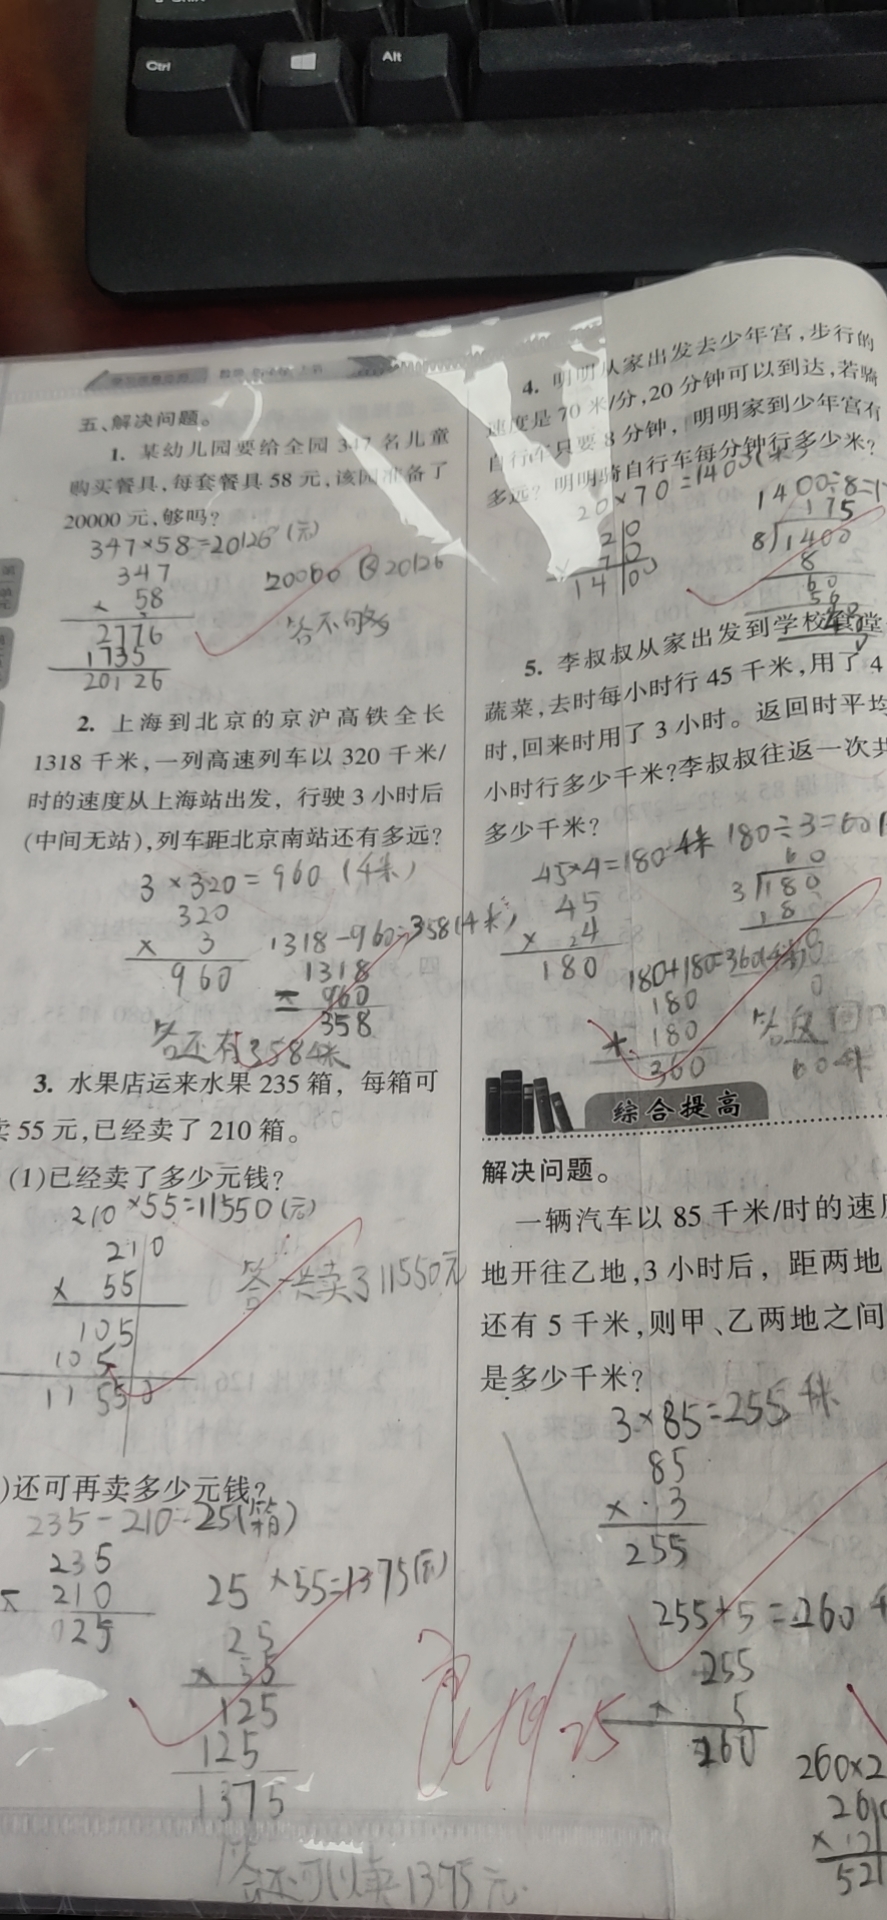 Ctrl
Alt
五、解决问题。
1. 某幼儿园要给全园 347 名儿童
购买餐具,每套餐具 58 元,该园准备了
20000 元,够吗?
347×58=20126(元)
347
× 58
2776
1735
20126
20000 < 20126
答不够
2. 上海到北京的京沪高铁全长
1318 千米,一列高速列车以 320 千米/
时的速度从上海站出发, 行驶 3 小时后
(中间无站),列车距北京南站还有多远?
3×320=960(千米)
320
× 3
960
1318-960=358(千米)
1318
- 960
358
答还有358千米
3. 水果店运来水果 235 箱, 每箱可
卖 55 元,已经卖了 210 箱。
(1)已经卖了多少元钱?
210×55=11550(元)
210
× 55
105
105
11550
答一共卖了11550元
)还可再卖多少元钱?
235-210=25(箱)
235
210
025
25×55=1375(元)
25
× 55
125
125
1375
答还可以卖1375元
4. 明明从家出发去少年宫,步行的
速度是 70 米/分,20 分钟可以到达,若骑
自行车只要 8 分钟, 明明家到少年宫有
多远? 明明骑自行车每分钟行多少米?
20×70=1400(米)
20
× 70
1400
1400÷8=1
175
8)1400
8
60
56
5. 李叔叔从家出发到学校食堂
蔬菜,去时每小时行 45 千米,用了 4
时,回来时用了 3 小时。返回时平均
小时行多少千米?李叔叔往返一次共
多少千米?
45×4=180千米
45
× 4
180
180÷3=60
60
3)180
18
0
180+180=360(千米)
180
+ 180
360
答返回
60千米
综合提高
解决问题。
一辆汽车以 85 千米/时的速
地开往乙地,3 小时后, 距两地
还有 5 千米,则甲、乙两地之间
是多少千米?
3×85=255千米
85
× 3
255
255+5=260千
255
+ 5
260
260×2
260
× 2
52